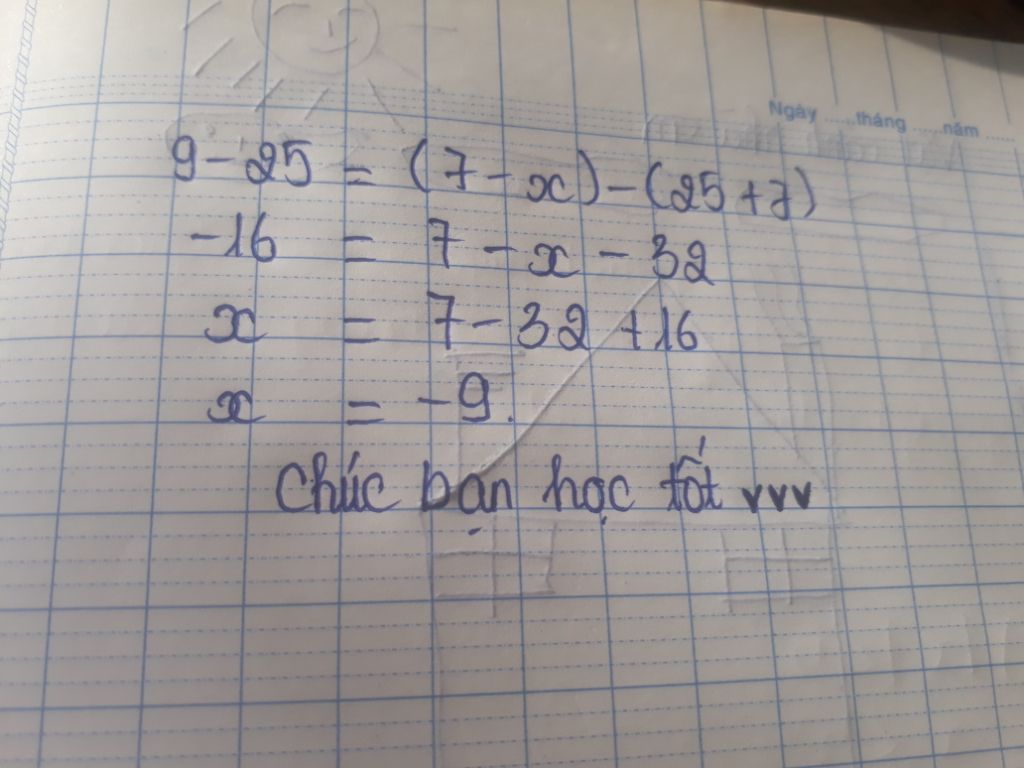 Ngày ......tháng ......năm ......
9 - 25 = (7 - x) - (25 + 7)
-16 = 7 - x - 32
x = 7 - 32 + 16
x = -9.
Chúc bạn học tốt vvv